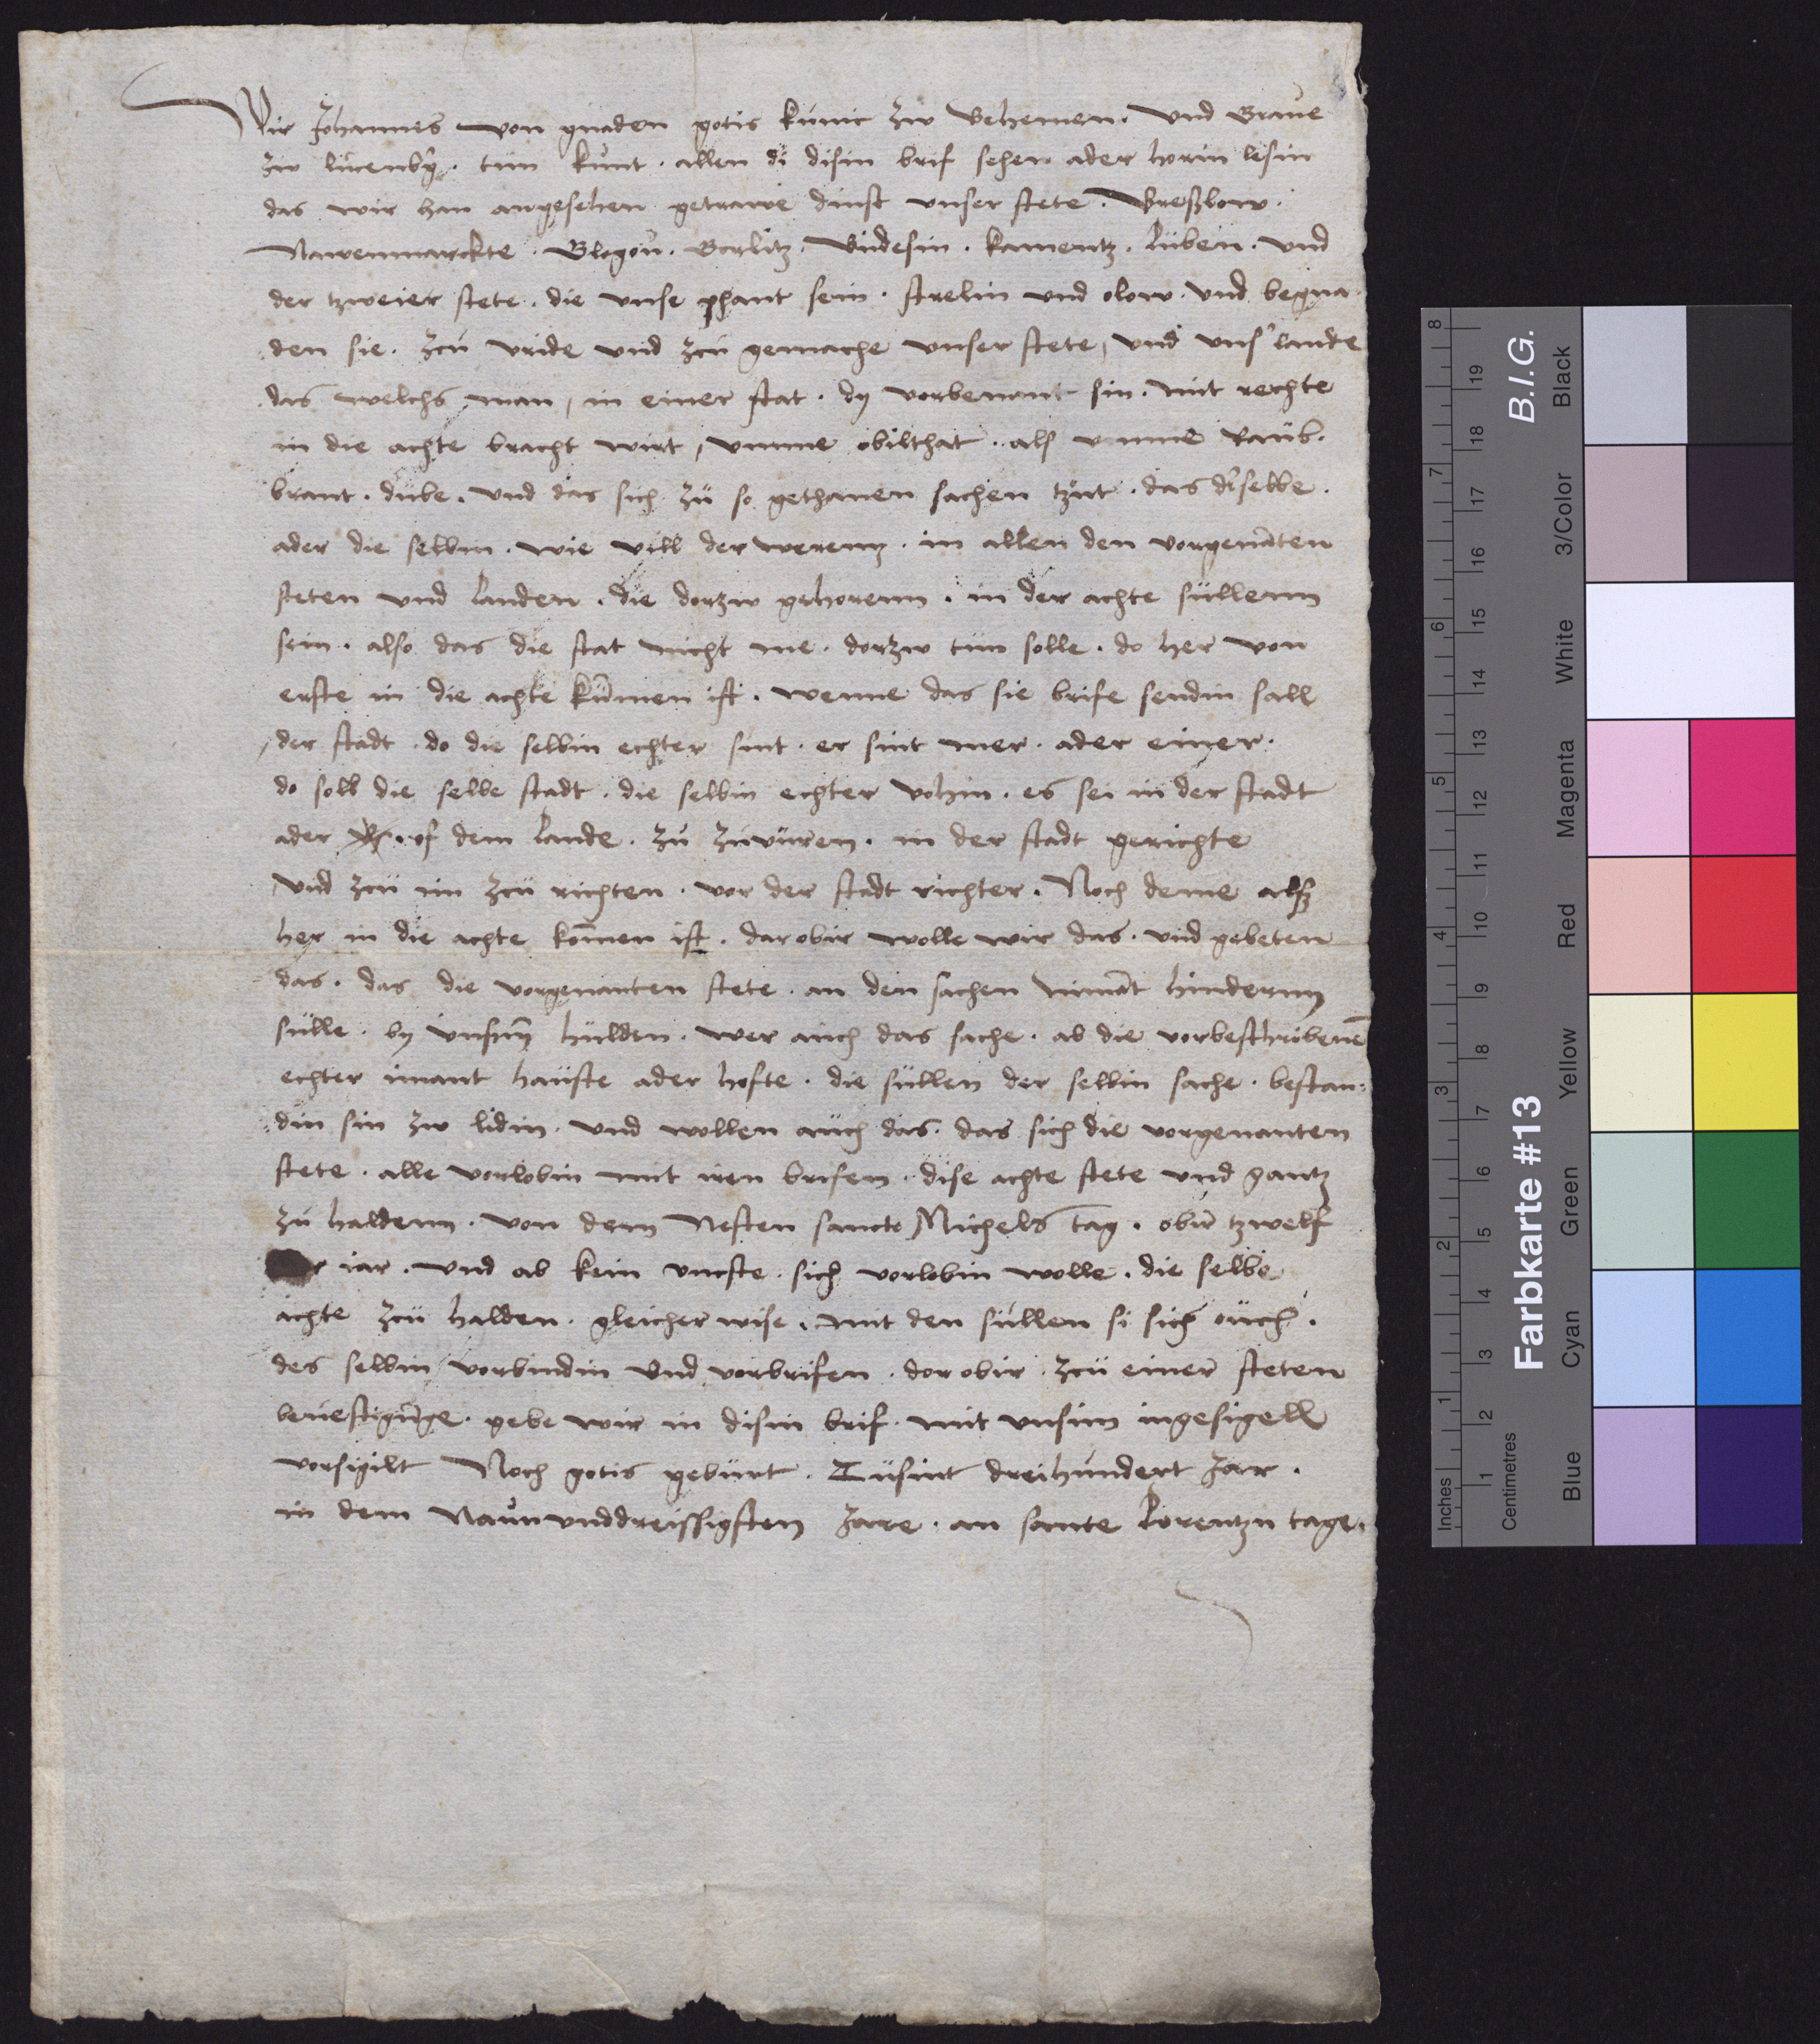 Wir Johannes von gnaden gotis kunic zw Behemen. und Graue
zw lucenb'g. tun kunt. allen di disin brif sehen ader horin lesin
das wir han angesehen getrawe dinst unser stete. Breßlow.
Nawenmarckte. Glogou. Gorlitz. Budesin. kamentz. luben. und
der tzweier stete. die unse phant sein. strelin und olow. und begna
den sie. zcu vride und zcu gemache unser stete, und uns' lande
das welchs man, in einer stat. dy vorbenant sin. mit rechte
in die achte bracht wirt, umme obilthat. als umme Raub.
brant. dube. und das sich zu so gethanen sachen tzut. das d'selbe.
ader die selbin. wie vill der werenn. in allen den vorgenāten
steten und landen. die dorzw gehorenn. in der achte süllenn
sein. also das die stat nicht me. dorzw tun solle. do her von
erste in die achte kūmen ist. wenne das sie brife sendin sall
der stadt. do die selbin echter sint. er sint mer. ader einer.
do soll die selbe stadt. die selbin echter vohin. es sei in der stadt
ader of dem lande. zu zuvüren. in der stadt gerichte
und zcu im zcu richten. vor der stadt richter. Noch deme alsz
her in die achte kōmen ist. dar obir wolle wir das. und gebeten
das. das die vorgenanten stete. an den sachen nimāt hindernn
sülle. by unsinn hulden. wer auch das sache. ab die vorbeschribenē
echter imant hauste ader hofte. die sullen der selbin sache. bestan:
din sin zw lidin. und wollen auch das. das sich die vorgenanten
stete. alle vorlobin mit iren brifen. dise achte stete und gantz
zu haldenn. von dem Nesten sancte Michels tag. obir tzwelf
iar. und ab kein vurste. sich vorlobin wolle. die selbe
achte zcu halden. gleicher wise. mit den süllen si sich ouch.
des selbin vorbindin und vorbrifen. dor obir. zcu einer steten
bevestigūge. gebe wir in disin brif. mit unsim ingesigell
vorsigilt Noch gotis geburt. Tusint dreihundert Jar.
in dem Naununddreissigsten Jare. an sante Lorentzn tage.
B.I.G.
Farbkarte #13
Inches 1 2 3 4 5 6 7 8
Centimetres 1 2 3 4 5 6 7 8 9 10 11 12 13 14 15 16 17 18 19
Blue Cyan Green Yellow Red Magenta White 3/Color Black